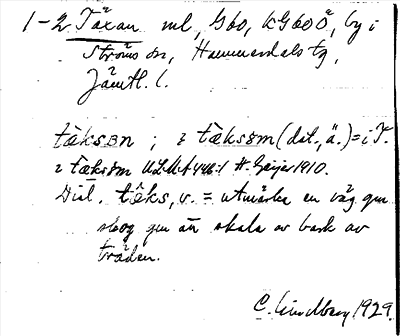 1-2 Täxan ml, G60, kG60Ö, by i
Ströms sn, Hammerdals tg,
Jämtl. l.
tàksɜn ; i tàksɜm (dat., ä.) = i T.
i tàksɜm ULMA 446:1 H. Geijer 1910.
Dial. tèks, v. = utmärka en väg gm
skog gm än skala av bark av
träden.
C. Lindberg 1929.